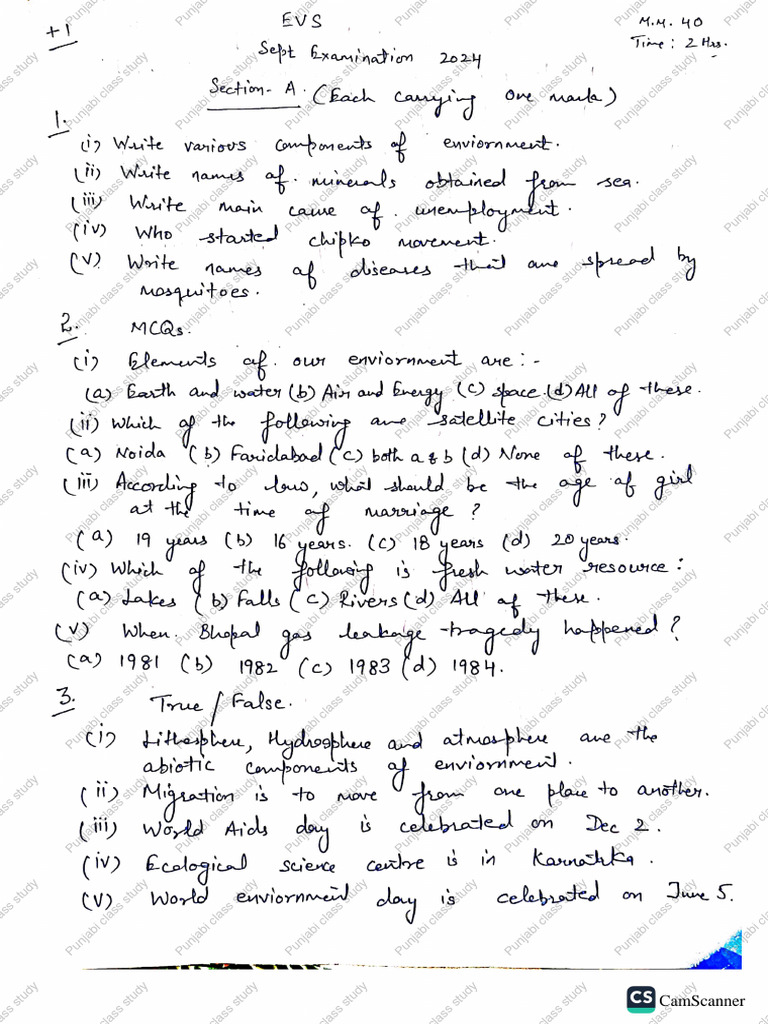 +1
EVS
M.M. 40
Sept Examination 2024
Time: 2 Hrs.
Section-A. (Each carrying one mark)
1.
(i) Write various components of enviornment.
(ii) Write names of minerals obtained from sea.
(iii) Write main cause of unemployment.
(iv) Who started chipko movement.
(v) Write names of diseases that are spread by
mosquitoes.
2. MCQs.
(i) Elements of our enviornment are:-
(a) Earth and water (b) Air and Energy (c) space (d) All of these.
(ii) Which of the following are satellite cities?
(a) Noida (b) Faridabad (c) both a & b (d) None of these.
(iii) According to law, what should be the age of girl
at the time of marriage?
(a) 19 years (b) 16 years. (c) 18 years (d) 20 years.
(iv) Which of the following is fresh water resource:
(a) Lakes (b) Falls (c) Rivers (d) All of these.
(v) When Bhopal gas leakage tragedy happened?
(a) 1981 (b) 1982 (c) 1983 (d) 1984.
3. True/False.
(i) Lithosphere, Hydrosphere and atmosphere are the
abiotic components of enviornment.
(ii) Migration is to move from one place to another.
(iii) World Aids day is celebrated on Dec 2.
(iv) Ecological science centre is in Karnatka.
(v) World enviornment day is celebrated on June 5.
Punjabi class study
CS CamScanner